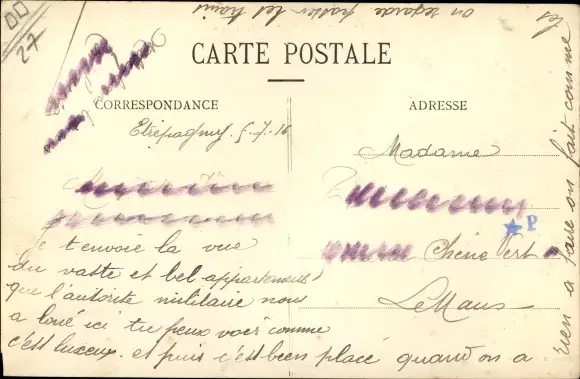 CARTE POSTALE
CORRESPONDANCE
ADRESSE
27
Etrépagny. 5.7.16
Je t'envoie la vue
du vaste et bel appartement
que l'autorité militaire nous
a loué ici tu peux voir comme
c'est luxeux. et puis c'est bien placé quand on a
rien a faire on fait comme
les
on regarde passer les trains
Madame
Chêne Vert
Le Mans
P